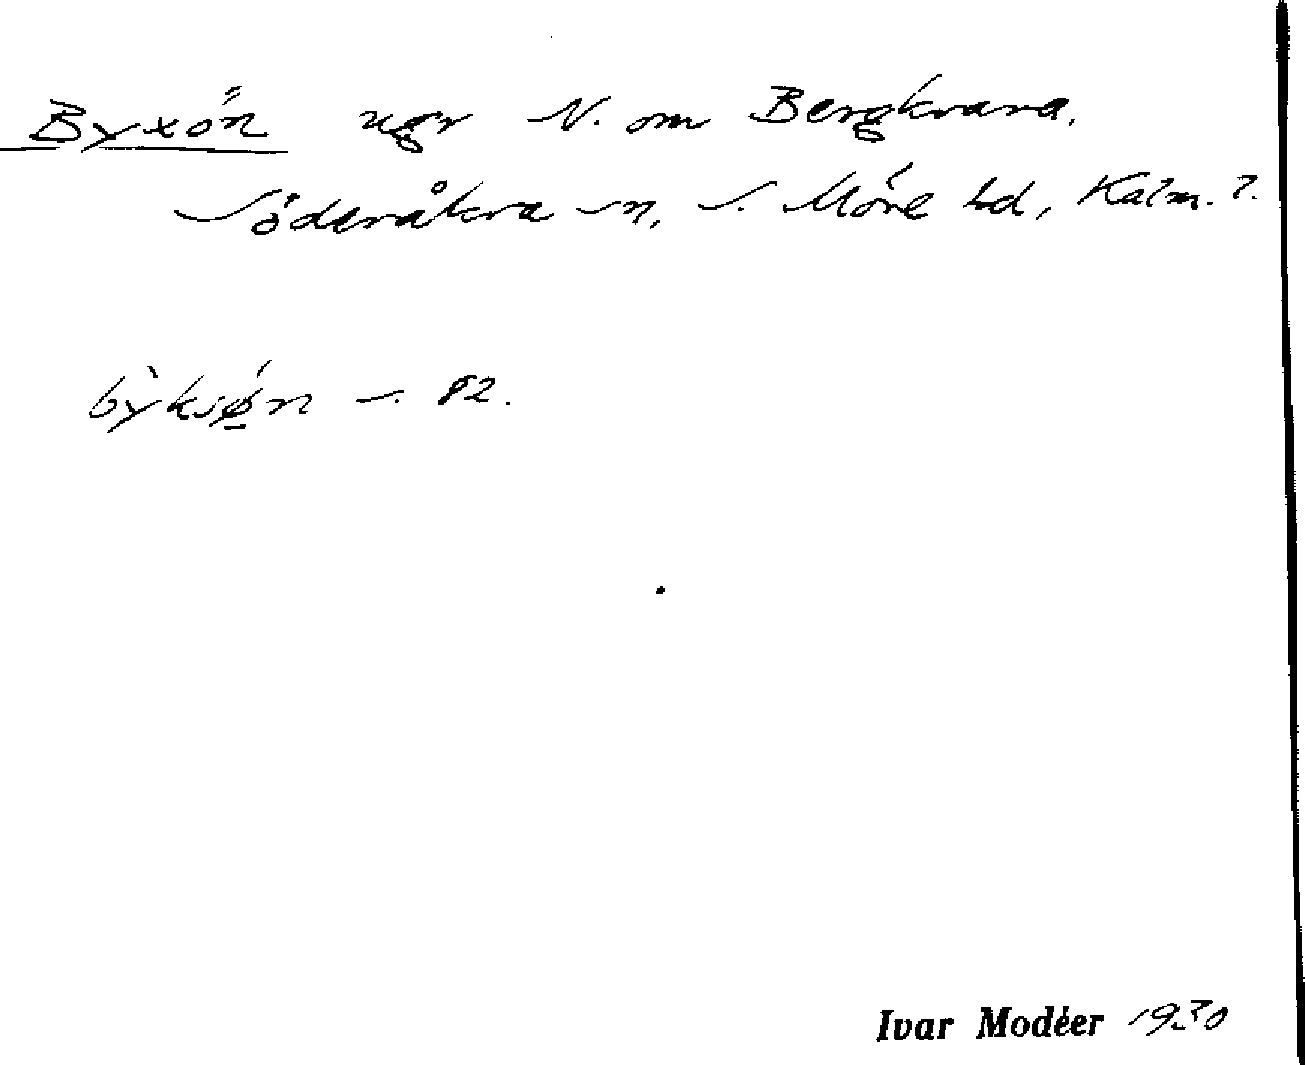 Byxön ugr N. om Bergkvara.
Söderåkra sn, S. Möre hd, Kalm. l.
bỳksǿ̲n s. 82.
Ivar Modéer 1930